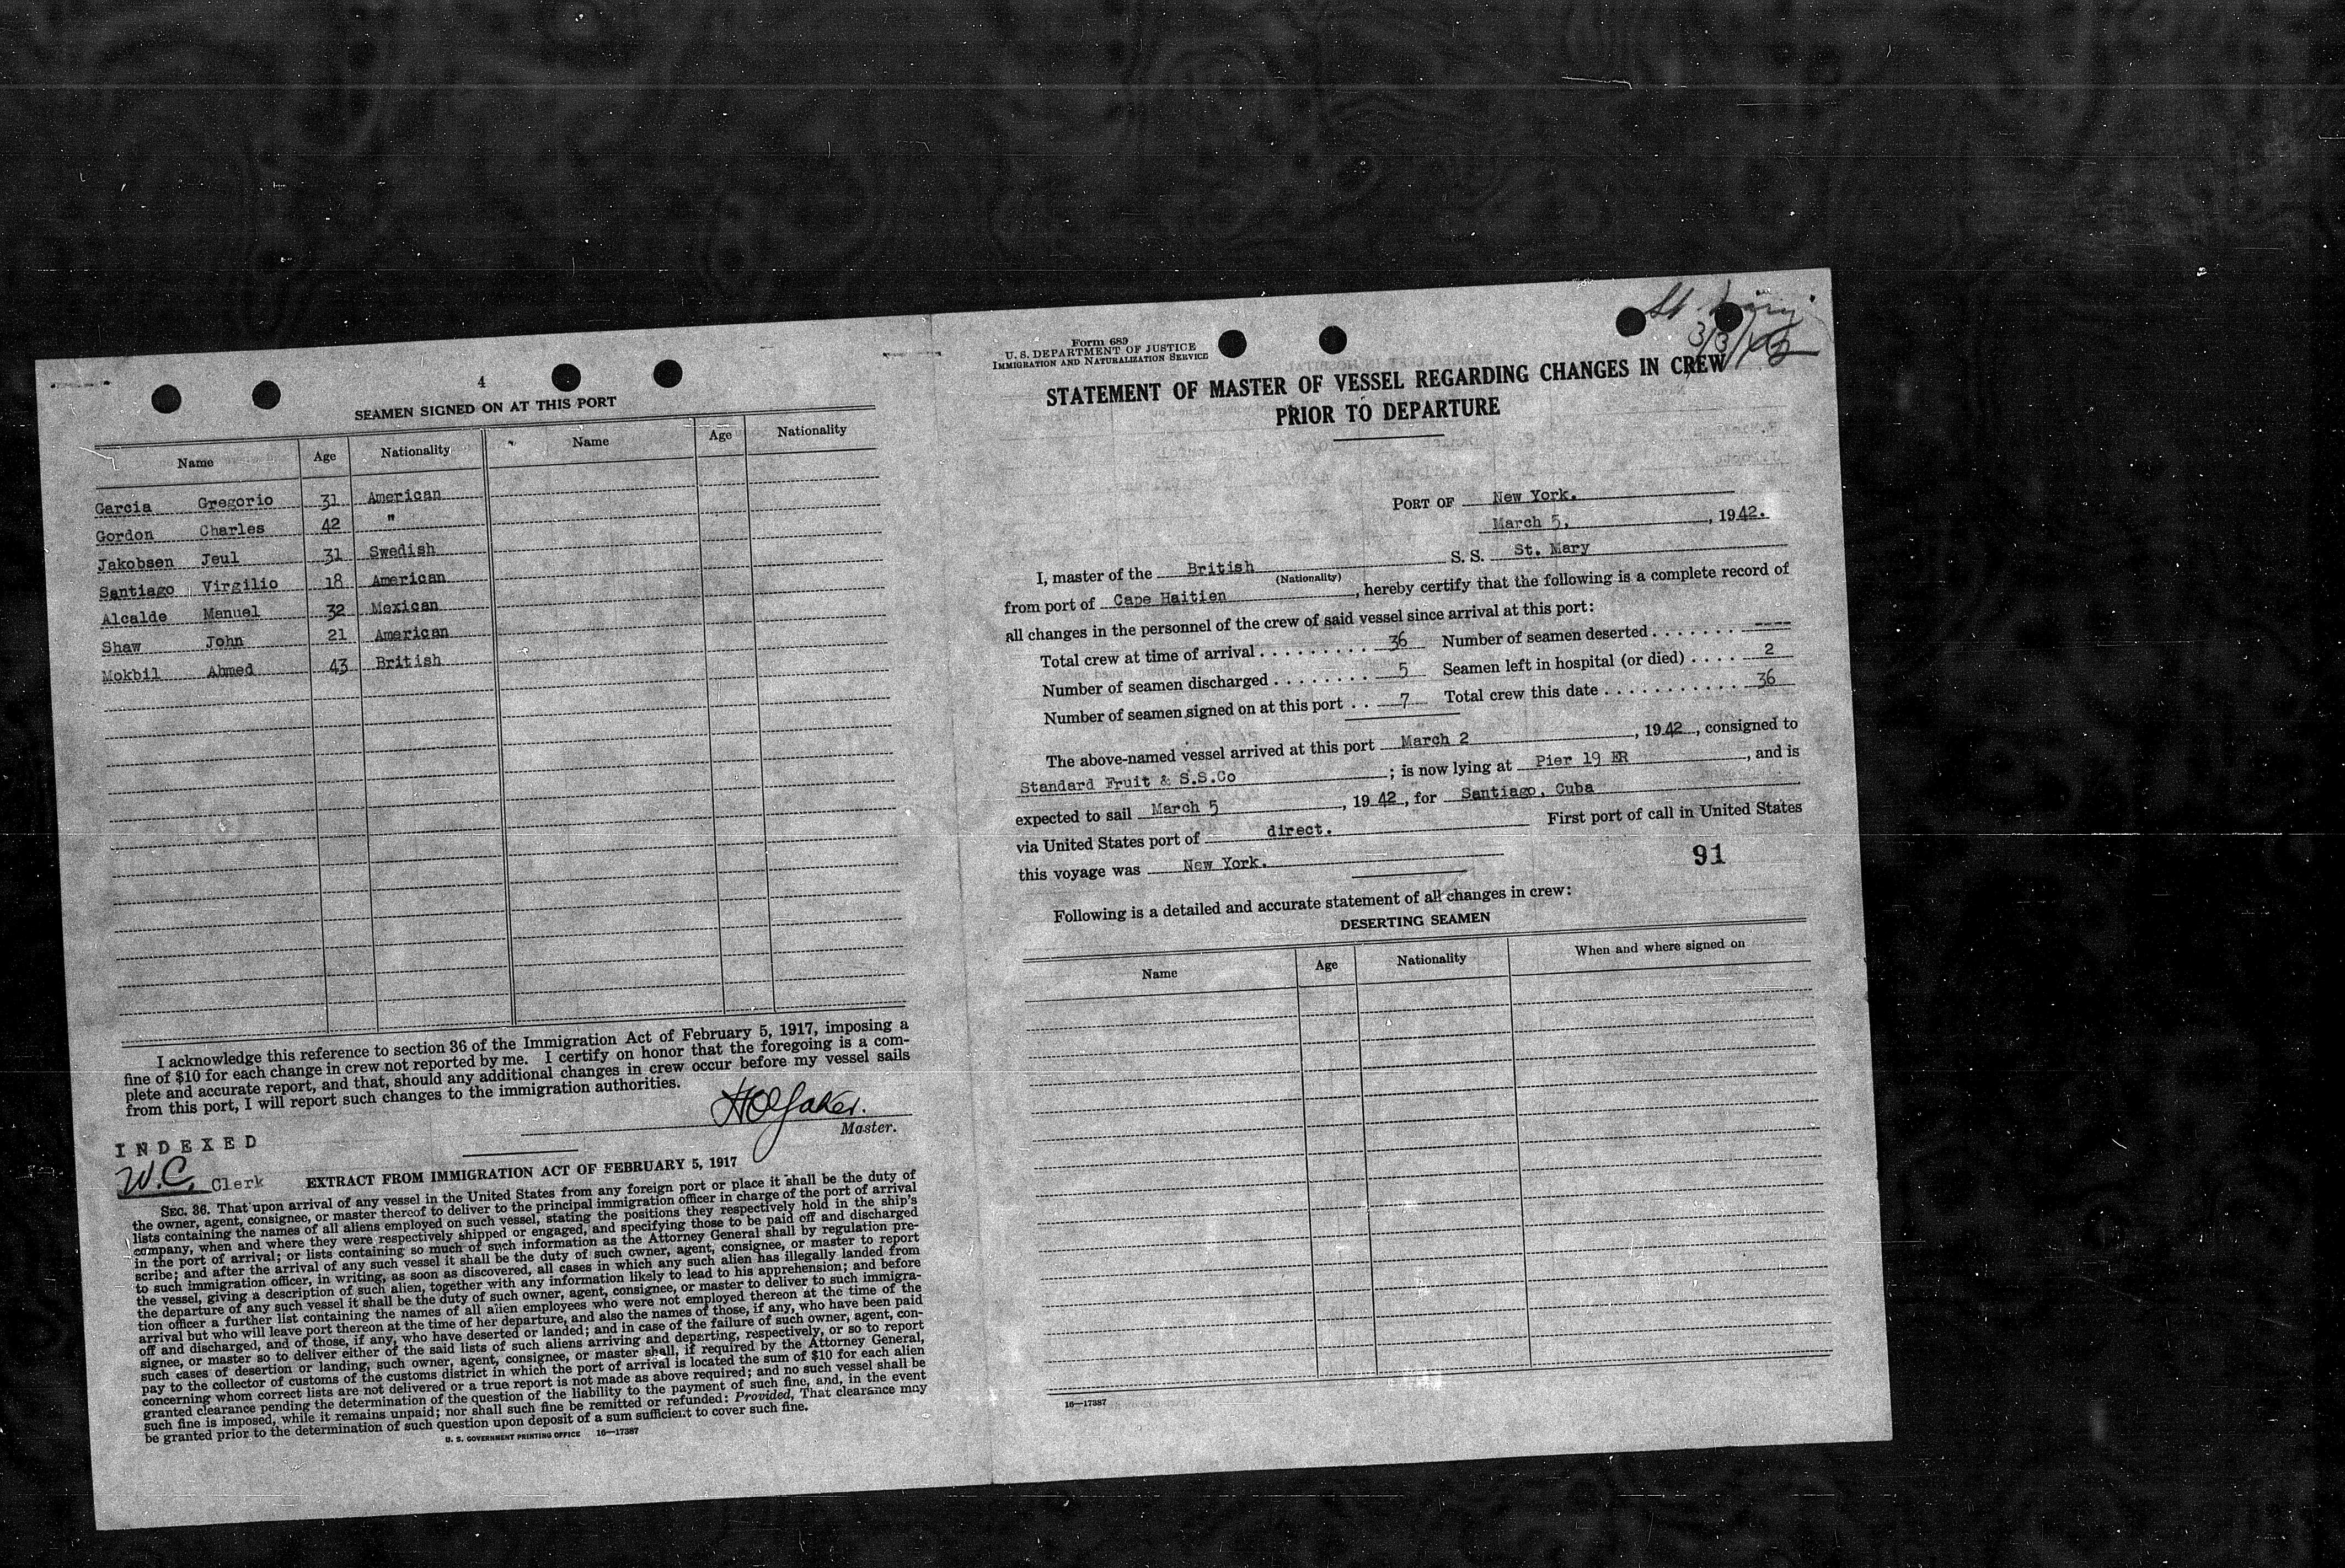 4
SEAMEN SIGNED ON AT THIS PORT
Name Age Nationality Name Age Nationality
Garcia Gregorio 31 American
Gordon Charles 42 "
Jakobsen Jeul 31 Swedish
Santiago Virgilio 18 American
Alcalde Manuel 32 Mexican
Shaw John 21 American
Mokbil Ahmed 43 British
I acknowledge this reference to section 36 of the Immigration Act of February 5, 1917, imposing a
fine of $10 for each change in crew not reported by me. I certify on honor that the foregoing is a com-
plete and accurate report, and that, should any additional changes in crew occur before my vessel sails
from this port, I will report such changes to the immigration authorities.
Master.
INDEXED
W.C. Clerk
EXTRACT FROM IMMIGRATION ACT OF FEBRUARY 5, 1917
SEC. 36. That upon arrival of any vessel in the United States from any foreign port or place it shall be the duty of
the owner, agent, consignee, or master thereof to deliver to the principal immigration officer in charge of the port of arrival
lists containing the names of all aliens employed on such vessel, stating the positions they respectively hold in the ship's
company, when and where they were respectively shipped or engaged, and specifying those to be paid off and discharged
in the port of arrival; or lists containing so much of such information as the Attorney General shall by regulation pre-
scribe; and after the arrival of any such vessel it shall be the duty of such owner, agent, consignee, or master to report
to such immigration officer, in writing, as soon as discovered, all cases in which any such alien has illegally landed from
the vessel, giving a description of such alien, together with any information likely to lead to his apprehension; and before
the departure of any such vessel it shall be the duty of such owner, agent, consignee, or master to deliver to such immigra-
tion officer a further list containing the names of all alien employees who were not employed thereon at the time of the
arrival but who will leave port thereon at the time of her departure, and also the names of those, if any, who have been paid
off and discharged, and of those, if any, who have deserted or landed; and in case of the failure of such owner, agent, con-
signee, or master so to deliver either of the said lists of such aliens arriving and departing, respectively, or so to report
such cases of desertion or landing, such owner, agent, consignee, or master shall, if required by the Attorney General,
pay to the collector of customs of the customs district in which the port of arrival is located the sum of $10 for each alien
concerning whom correct lists are not delivered or a true report is not made as above required; and no such vessel shall be
granted clearance pending the determination of the question of the liability to the payment of such fine, and, in the event
such fine is imposed, while it remains unpaid; nor shall such fine be remitted or refunded: Provided, That clearance may
be granted prior to the determination of such question upon deposit of a sum sufficient to cover such fine.
U. S. GOVERNMENT PRINTING OFFICE 16—17387
St. Mary
3/3/42
Form 689
U. S. DEPARTMENT OF JUSTICE
IMMIGRATION AND NATURALIZATION SERVICE
STATEMENT OF MASTER OF VESSEL REGARDING CHANGES IN CREW
PRIOR TO DEPARTURE
PORT OF New York.
March 5, , 1942.
I, master of the British S. S. St. Mary
(Nationality)
from port of Cape Haitien , hereby certify that the following is a complete record of
all changes in the personnel of the crew of said vessel since arrival at this port:
Total crew at time of arrival . . . . . . . . . . 36 Number of seamen deserted . . . . . . . ----
Number of seamen discharged . . . . . . . . 5 Seamen left in hospital (or died) . . . . 2
Number of seamen signed on at this port . . 7 Total crew this date . . . . . . . . . . . . 36
The above-named vessel arrived at this port March 2 , 1942, consigned to
Standard Fruit & S.S.Co ; is now lying at Pier 19 ER , and is
expected to sail March 5 , 1942, for Santiago, Cuba
via United States port of direct. First port of call in United States
this voyage was New York.
91
Following is a detailed and accurate statement of all changes in crew:
DESERTING SEAMEN
Name Age Nationality When and where signed on
16—17387